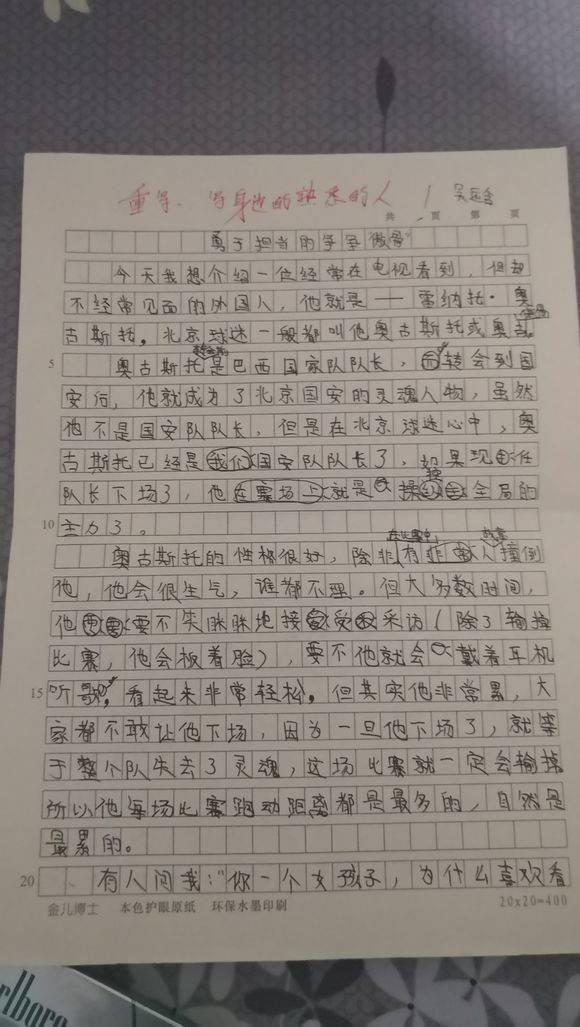 重写、写身边的熟悉的人
共 页 第 页
勇于担当的李宇微哥"
今天我想介绍一位经常在电视看到,但却
不经常见面的外国人,他就是——雷纳托·奥
古斯托。北京球迷一般都叫他奥古斯托或奥古。
5 奥古斯托是巴西国家队队长,转会到国
安后,他就成为了北京国安的灵魂人物,虽然
他不是国安队队长,但是在北京球迷心中,奥
古斯托已经是我们国安队队长了,如果现任
队长下场了,他在赛场上就是操全局的
10 主力了。
奥古斯托的性格很好,除非有人撞倒
他,他会很生气,谁都不理。但大多数时间,
他要不笑眯眯地接受采访(除了输掉
比赛,他会板着脸),要不他就会戴着耳机
15 听歌,看起来非常轻松。但其实他非常累,大
家都不敢让他下场,因为一旦他下场了,就等
于整个队失去了灵魂,这场比赛就一定会输掉
所以他每场比赛跑动距离都是最多的,自然是
最累的。
20 有人问我:"你一个女孩子,为什么喜欢看
金儿博士 本色护眼原纸 环保水墨印刷 20x20=400
arlboro